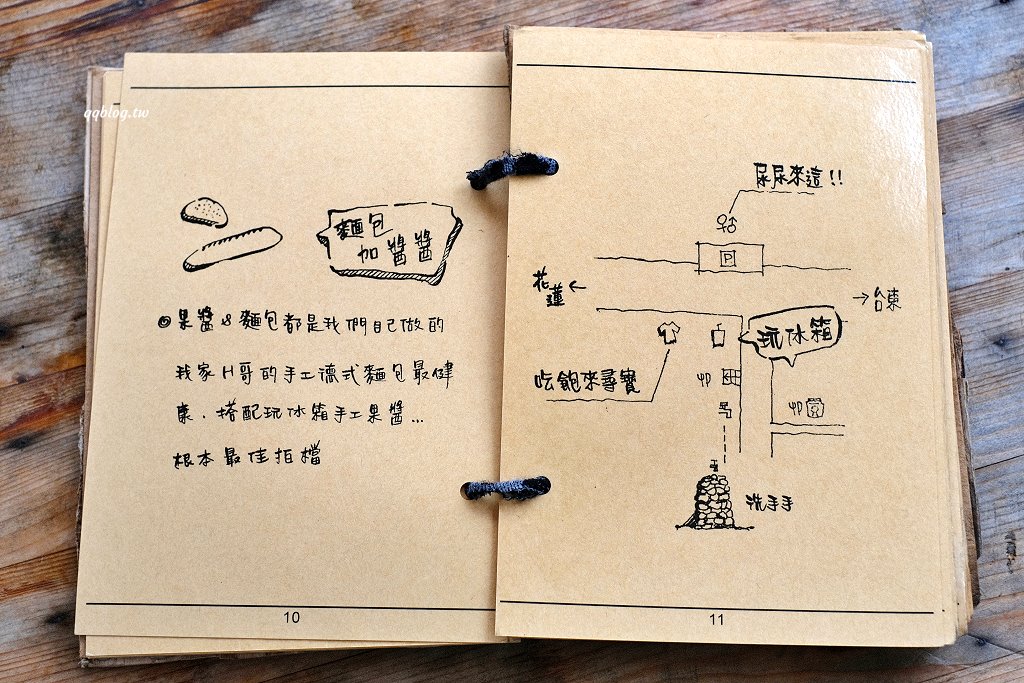 qqblog.tw
麵包
加醬醬
◎果醬&麵包都是我們自己做的
我家H哥的手工德式麵包最健
康、搭配玩冰箱手工果醬...
根本最佳拍檔
10
尿尿來這!!
P
花蓮←
→台東
玩冰箱
吃飽來尋寶
洗手手
11